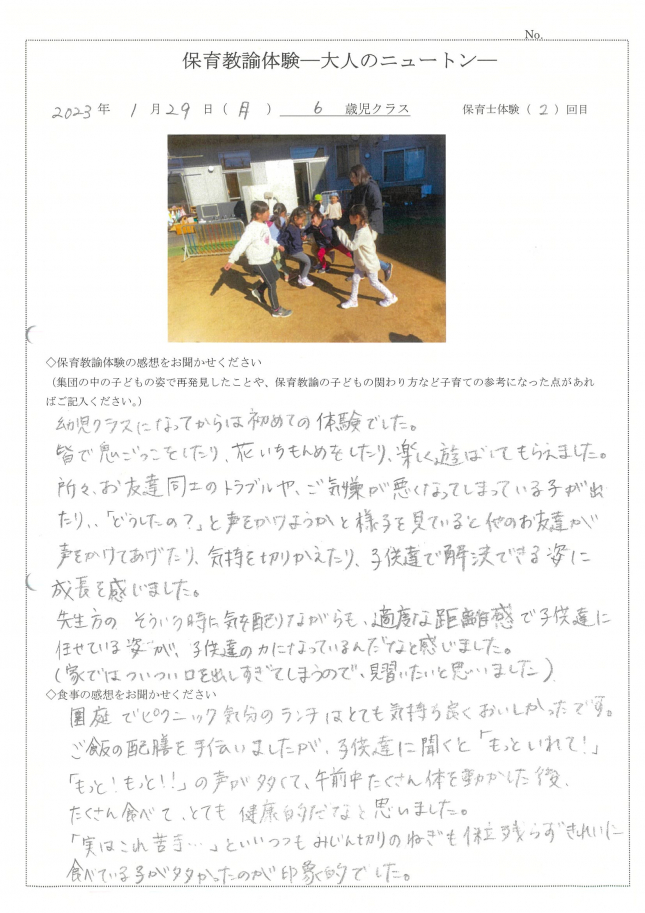 No.
保育教諭体験―大人のニュートン―
2023年 1月29日(月) 6歳児クラス 保育士体験(2)回目
◇保育教諭体験の感想をお聞かせください
(集団の中の子どもの姿で再発見したことや、保育教諭の子どもの関わり方など子育ての参考になった点があれ
ばご記入ください。)
幼児クラスになってからは初めての体験でした。
皆で鬼ごっこをしたり、花いちもんめをしたり、楽しく遊ばせてもらえました。
所々、お友達同士のトラブルや、ご気嫌が悪くなってしまっている子が出
たり、、「どうしたの?」と声をかけようかと様子を見ていると他のお友達が
声をかけてあげたり、気持を切りかえたり、子供達で解決できる姿に
成長を感じました。
先生方の そういう時に気を配りながらも、適度な距離感で子供達に
任せている姿が、子供達の力になっているんだなと感じました。
(家ではついつい口を出しすぎてしまうので、見習いたいと思いました)
◇食事の感想をお聞かせください
園庭でピクニック気分のランチはとても気持ち良くおいしかったです。
ご飯の配膳を手伝いましたが、子供達に聞くと「もっといれて!」
「もっと!もっと!!」の声が多くて、午前中たくさん体を動かした後、
たくさん食べて、とても健康的だなと思いました。
「実はこれ苦手…」といいつつもみじん切りのねぎも1粒残らずきれいに
食べている子が多かったのが印象的でした。